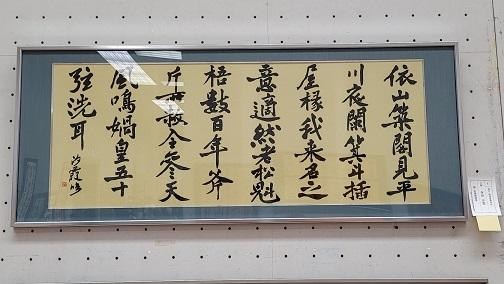 依山築閣見平
川夜闌箕斗插
屋椽我来名之
意適然老松魁
梧數百年斧
斤所赦今参天
風鳴媧皇五十
弦洗耳